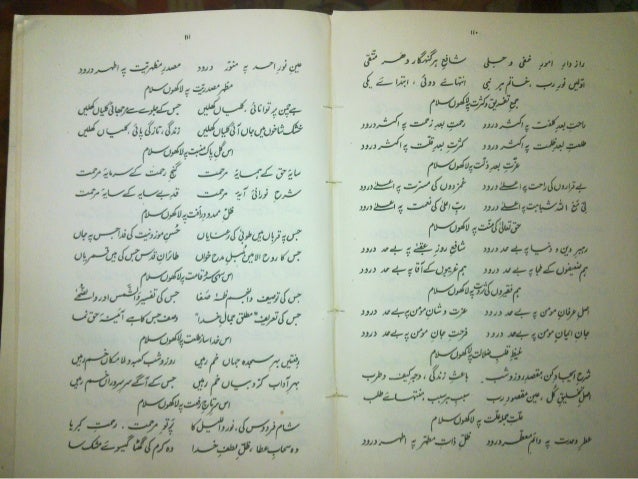 ۱۱۰
راز دارِ امورِ خفی و جلی شافعِ ہر گنہگار و ہر متقی
اولیں نورِ رب، خاتم ہر نبی انتہائے دوئی، ابتدائے یکی
جمع تفریق و کثرت پہ لاکھوں سلام
راحتِ بعد کلفت پہ اکثر درود رحمتِ بعد زحمت پہ اکثر درود
طلعتِ بعد ظلمت پہ اکثر درود کثرتِ بعد قلت پہ اکثر درود
عزتِ بعد ذلت پہ لاکھوں سلام
بے قراروں کی راحت پہ اعلیٰ درود غمزدوں کی مسرت پہ اعلیٰ درود
رب اعلیٰ کی نعمت پہ اعلیٰ درود
حق تعالیٰ کی منت پہ لاکھوں سلام
رہبرِ دین و دنیا پہ بے حد درود شافعِ روزِ عقبیٰ پہ بے حد درود
ہم ضعیفوں کے ملجا پہ بے حد درود ہم غریبوں کے آقا پہ بے حد درود
ہم فقیروں کی ثروت پہ لاکھوں سلام
اصل عرفانِ مومن پہ بے حد درود عزت و شانِ مومن پہ بے حد درود
جان ایمانِ مومن پہ بے حد درود فرحتِ جانِ مومن پہ بے حد درود
غیظِ قلبِ ضلالت پہ لاکھوں سلام
شرحِ کن، مقصدِ روز و شب باعثِ زندگی، وجہ کیف و طرب
اصلِ تخلیقِ کل، عین مقصودِ رب سببِ ہر سبب، منتہائے طلب
علتِ جملہ علت پہ لاکھوں سلام
عطرِ وحدت پہ دائم معطر درود ظلِ ذاتِ مطہر پہ اطہر درود
۱۱۱
عینِ نورِ احد پہ منور درود مصدرِ مظہریت پہ اظہر درود
مظہرِ مصدریت پہ لاکھوں سلام
ہے چمن پر توانائی، کلیاں کھلیں جس کے جلوے سے مرجھائی کلیاں کھلیں
خشک شاخوں میں جاں آئی کلیاں کھلیں زندگی، تازگی پائی، کلیاں کھلیں
اس گل پاک منبت پہ لاکھوں سلام
سایۂ حق کے ہمسایۂ مرحمت گنجِ رحمت کے سرمایۂ مرحمت
شرحِ نورانی آیۂ مرحمت قدِ بے سایہ کے سایۂ مرحمت
ظلِ ممدود رأفت پہ لاکھوں سلام
جس پہ قرباں ہیں طوبیٰ کی حسنِ موزونیت کی فدا جس پہ جاں
جس کا روح الامیں مدح خواں طائرانِ قدس جس کی ہیں قمریاں
اس سہی سرو قامت پہ لاکھوں سلام
جس کی توصیف جس کی تفسیر والشمس اور والضحیٰ
جس کی تعریف "مطلق جمالِ خدا" وصف جس کا ہے آئینۂ حق نما
اس خدا ساز طلعت پہ لاکھوں سلام
رفعتیں بہر سجدہ جہاں خم رہیں روز و شب کعبہ و لامکاں خم رہیں
بہر آداب جہاں خم رہیں جس کے آگے سرِ سروراں خم رہیں
اس سرِ تاجِ رفعت پہ لاکھوں سلام
شام فردوس کی، نورِ واللیل کا پرتوِ مرحمت، رحمتِ کبریا
وہ سحابِ عطا، ظلِ لطفِ خدا وہ کرم کی گھٹا گیسوئے مشک سا